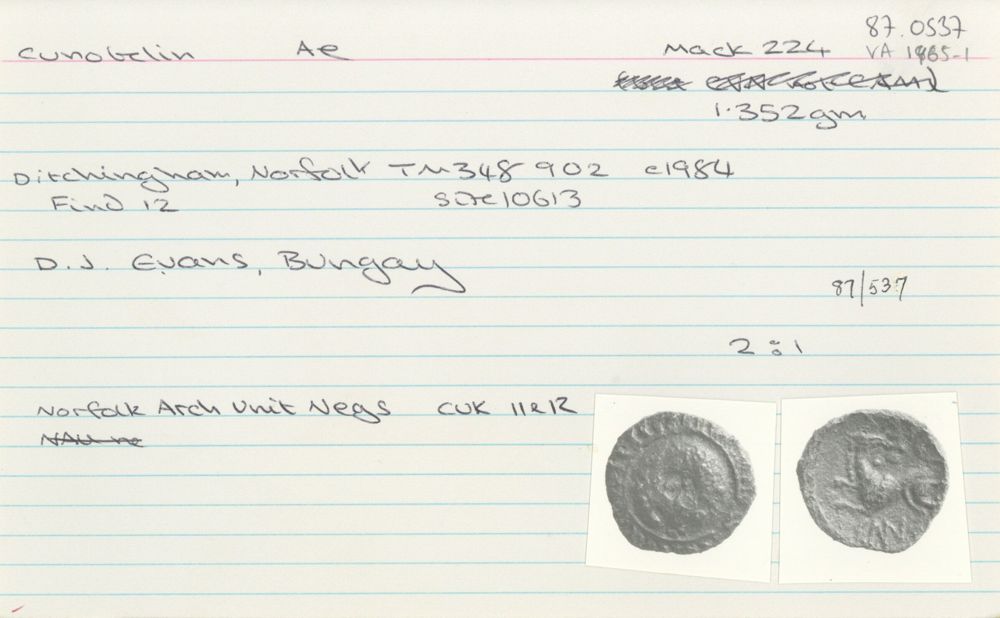 87.0537
Cunobelin Ae Mack 224 VA 1965-1
1.352gm
Ditchingham, Norfolk TM348 902 c1984
Find 12 Site 10613
D.J. Evans, Bungay
87/537
2:1
Norfolk Arch Unit Negs CUK 11&12
NAU